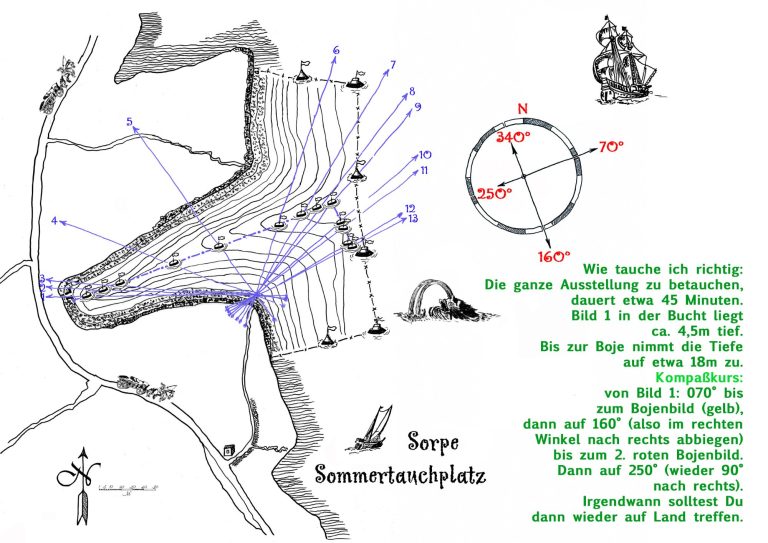 6
7
8
9
5
10
11
4
12
13
N
340°
70°
250°
160°
Wie tauche ich richtig:
Die ganze Ausstellung zu betauchen,
dauert etwa 45 Minuten.
Bild 1 in der Bucht liegt
ca. 4,5m tief.
Bis zur Boje nimmt die Tiefe
auf etwa 18m zu.
Kompaßkurs:
von Bild 1: 070° bis
zum Bojenbild (gelb),
dann auf 160° (also im rechten
Winkel nach rechts abbiegen)
bis zum 2. roten Bojenbild.
Dann auf 250° (wieder 90°
nach rechts).
Irgendwann solltest Du
dann wieder auf Land treffen.
Sorpe
Sommertauchplatz
N